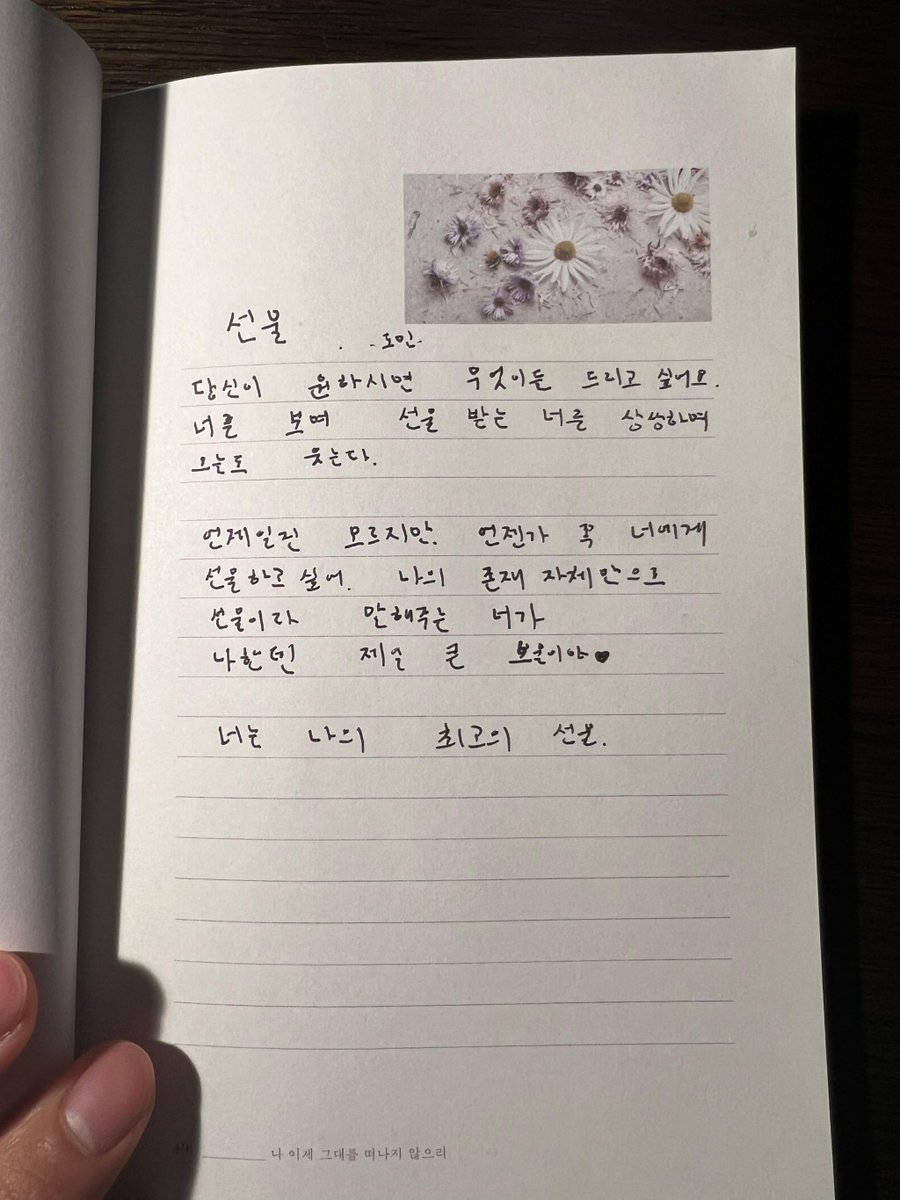 선물
- 도민 -
당신이 원하시면 무엇이든 드리고 싶어요.
너를 보며 선물 받는 너를 상상하며
오늘도 웃는다.
언제일진 모르지만. 언젠가 꼭 너에게
선물하고 싶어. 나의 존재 자체만으로
선물이라 말해주는 너가
나한텐 제일 큰 보물이야♥
너는 나의 최고의 선물.
나 이제 그대를 떠나지 않으리